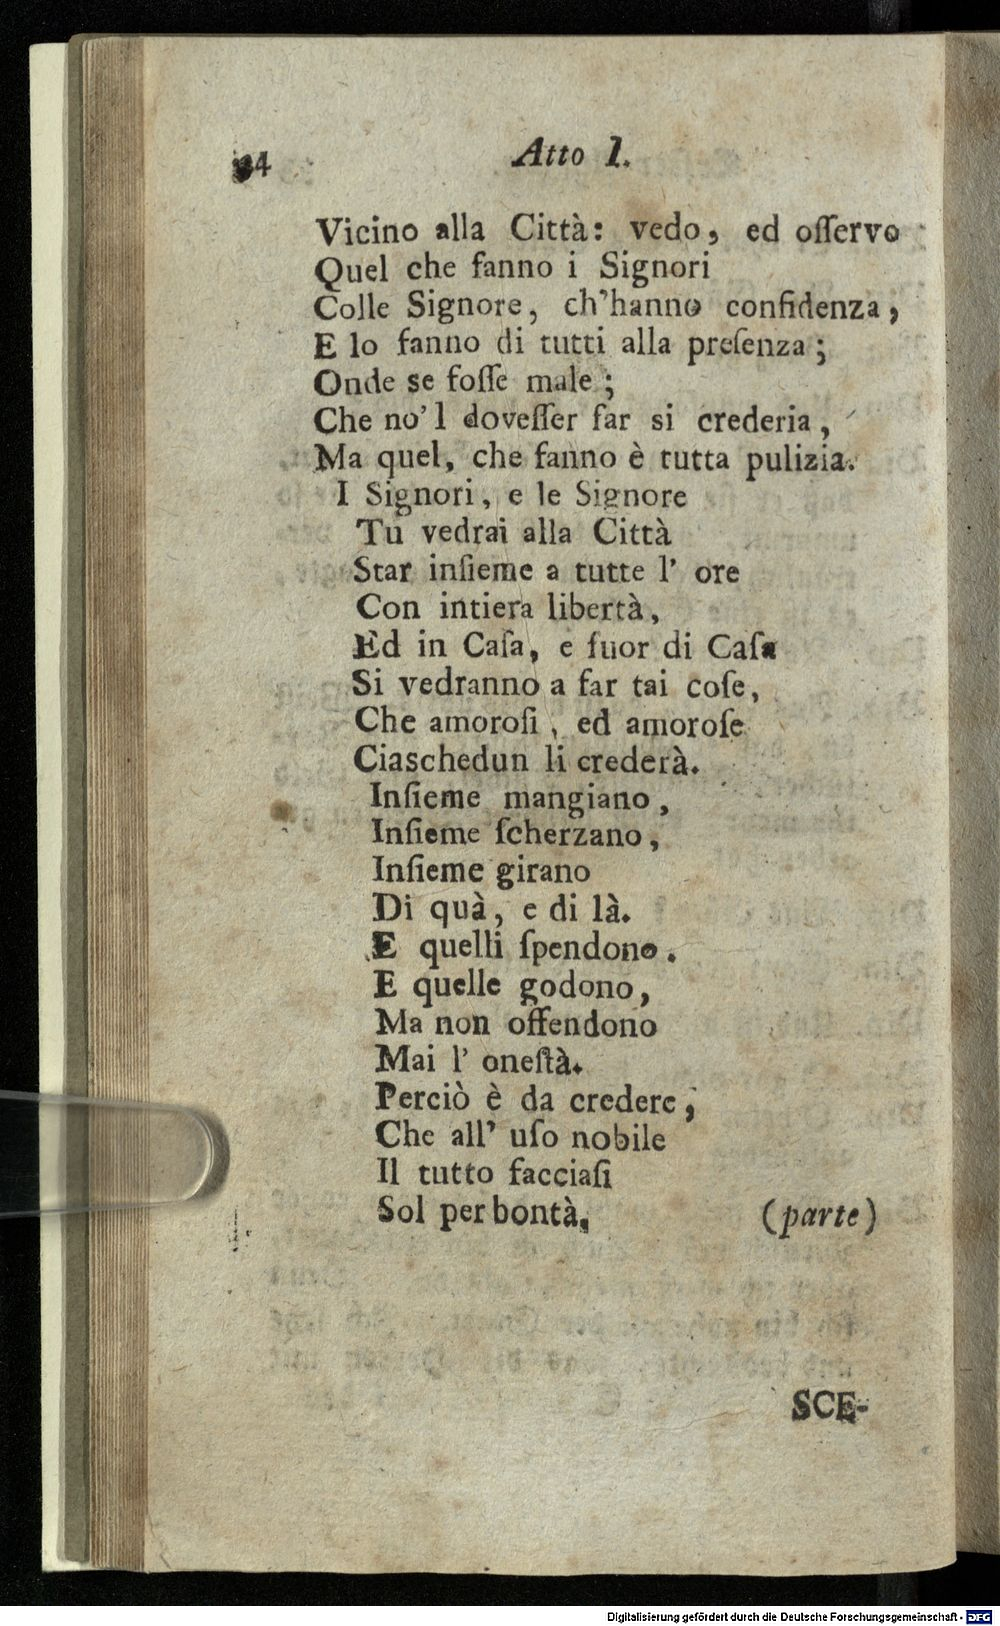 34 Atto I.
Vicino alla Città: vedo, ed oſſervo
Quel che fanno i Signori
Colle Signore, ch'hanno confidenza,
E lo fanno di tutti alla preſenza;
Onde se foſſe male;
Che no'l doveſſer far si crederia,
Ma quel, che fanno è tutta pulizia.
I Signori, e le Signore
Tu vedrai alla Città
Star inſieme a tutte l' ore
Con intiera libertà,
Ed in Caſa, e fuor di Caſa
Si vedranno a far tai coſe,
Che amoroſi, ed amoroſe
Ciaschedun li crederà.
Inſieme mangiano,
Inſieme ſcherzano,
Inſieme girano
Di quà, e di là.
E quelli ſpendono.
E quelle godono,
Ma non offendono
Mai l' oneſtà.
Perciò è da credere,
Che all' uſo nobile
Il tutto facciaſi
Sol per bontà, (parte)
SCE-
Digitalisierung gefördert durch die Deutsche Forschungsgemeinschaft - DFG